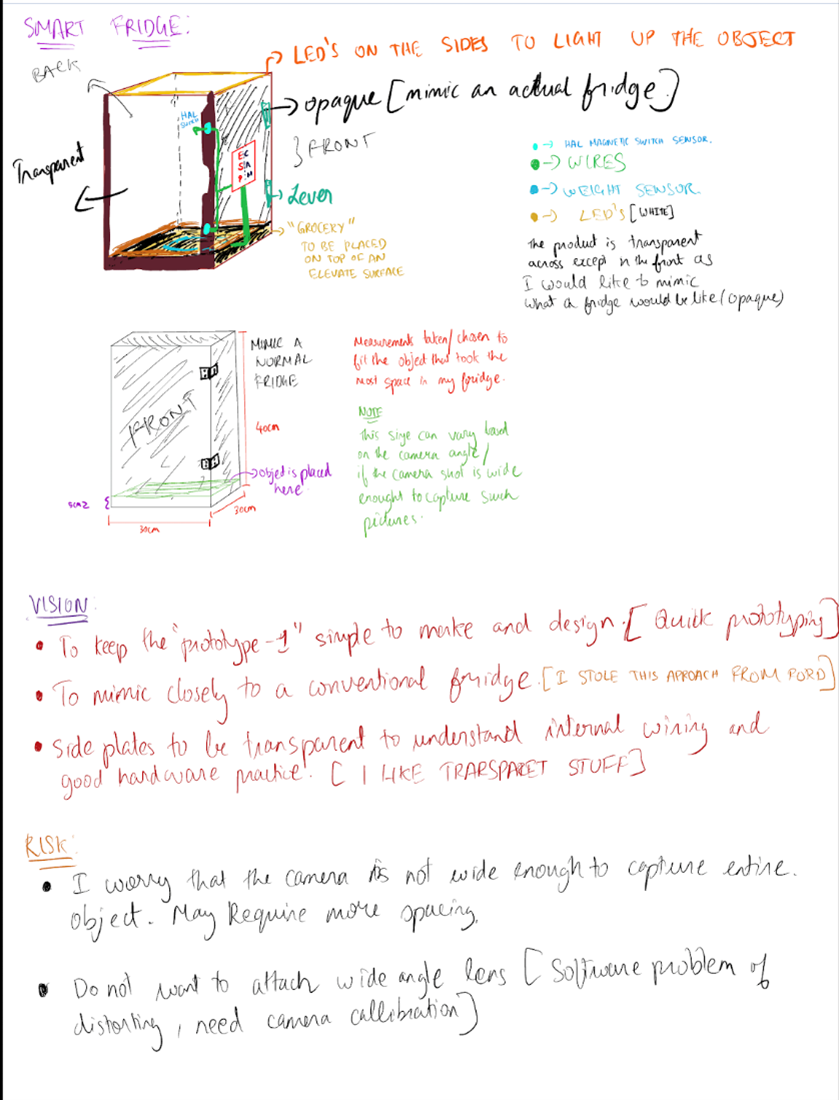 SMART FRIDGE:
LED'S ON THE SIDES TO LIGHT UP THE OBJECT
BACK
opaque [mimic an actual fridge]
HAL
} FRONT
Transparent
Lever
"GROCERY"
TO BE PLACED
ON TOP OF AN
ELEVATE SURFACE
→ HAL MAGNETIC SWITCH SENSOR.
→ WIRES
→ WEIGHT SENSOR.
→ LED's [WHITE]
The product is transparent
across except in the front as
I would like to mimic
what a fridge would be like (opaque)
MIMIC A
NORMAL
FRIDGE
FRONT
40cm
object is placed
here.
30cm
30cm
Measurements taken/chosen to
fit the object that took the
most space in my fridge.
NOTE
This size can vary based
on the camera angle/
if the camera shot is wide
enought to capture such
pictures.
VISION:
• To keep the "prototype-1" simple to make and design. [Quick prototyping]
• To mimic closely to a conventional fridge. [I STOLE THIS APROACH FROM FORD]
• Side plates to be transparent to understand internal wiring and
good hardware practice. [I LIKE TRARSPARET STUFF]
RISK:
• I worry that the camera is not wide enough to capture entire.
object. May Require more spacing.
• Do not want to attach wide angle lens [Software problem of
distorting, need camera callibration]